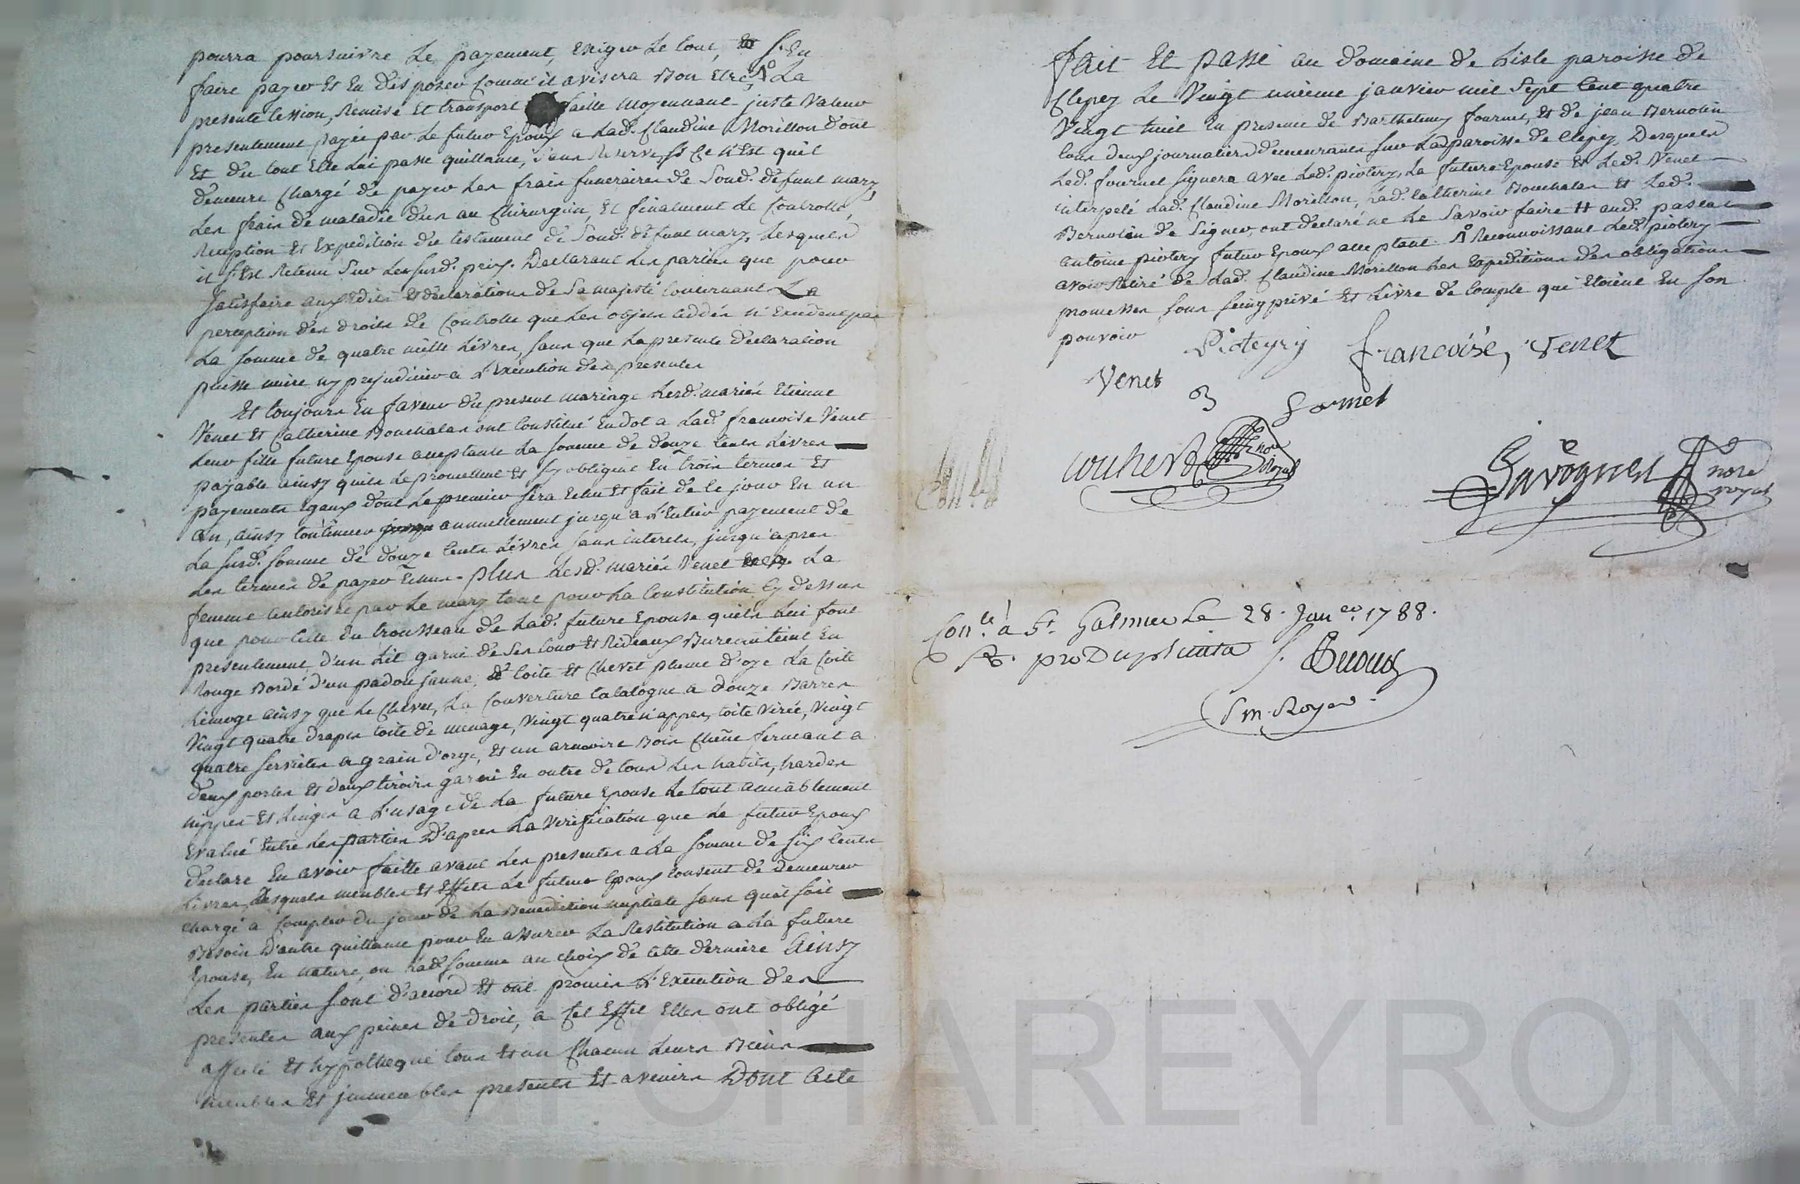 pourra poursuivre le payement, exiger le tout, s'en
faire payer et en disposer comme il avisera bon etre, la
presente cession, remise et transport faitte moyennant juste valeur
presentement payée par le futur epoux a lad. Claudine Morillon dont
et du tout elle lui passe quittance, sans reserve si ce n'est quil
demeure chargé de payer les frais funeraires de sond. defunt mary,
les frais de maladie dus au chirurgien, et finalment le controlle,
reception et expedition du testament de sond. defunt mary, lesquels
il s'est retenu sur lesusd. prix. Declarant les parties que pour
satisfaire aux edits et declarations de sa majesté concernant la
perception des droits de controlle que les objets cedés n'excedent pas
la somme de quatre mille livres, sans que la presente declaration
puisse nuire ny prejudicier a l'execution des presentes
Et toujours en faveur du present mariage lesd. mariés Etienne
Venet et Catherine Bouchalas ont constitué en dot a lad. francoise Venet
leur fille future epouse acceptante la somme de douze cents livres
payable ainsy quils le promettent et s'y obligent en trois termes et
payements egaux dont le premier sera echu et fait de ce jour en un
an, ainsy continuer annuellement jusqu'a l'entier payement de
la susd. somme de douze cents livres sans interets, jusqu'apres
les termes de payer echus. plus lesd. mariés Venet la
femme autorisée par le mary tant pour la constitution cy dessus
que pour celle du trousseau de lad. future epouse quils lui font
presentement, d'un lit garni de son tour et rideaux Bure en teint en
rouge bordé d'un padou jaune, de coite et chevet plume d'oye la coite
limoge ainsy que le chevet, la couverture catalogne a douze barres
vingt quatre draps toile de menage, vingt quatre nappes, toile virée, vingt
quatre serviettes a grain d'orge, et un armoire bois chêne fermant a
deux portes et deux tiroirs garni en outre de tous les habits, hardes
nippes et linges a l'usage de la future epouse le tout amiablement
evalué entre les parties d'apres la verification que le futur epoux
declare en avoir faitte avant les presentes a la somme de six cents
livres, desquels meubles et effets le futur epoux consent de demeurer
chargé a compter du jour de la benediction nuptiale sans quil soit
besoin d'autre quittance pour en assurer la restitution a la future
epouse, en nature, ou lad. somme au choix de cette derniere ainsy
les parties sont d'accord et ont promis l'execution des
presentes aux peines de droit, a cet effet elles ont obligé
affecté et hypotheque tous et un chacun leurs biens
meubles et immeubles presents et avenirs Dont acte
fait et passé au domaine de Lisle paroisse de
Clepez le Vingt unieme janvier mil sept cent quatre
vingt huit en presence de Barthelemy fournel, et de jean Bernolin
tous deux journaliers demeurants sur lad. paroisse de Clepez, Desquels
led. fournel signera avec led. piotery, la future epouse et led. Venet
interpelé lad. Claudine Morillon, lad. Catherine Bouchalas et led.
Bernolin de signer, ont declaré ne le savoir faire # aud. pascal
antoine pioteyry futur epoux acceptant reconnoissant led. pioteyry
avoir retiré de lad. Claudine Morillon les expeditions des obligations
promesses sous seing privé et livre de compte qui etoient en son
pouvoir
Pioteyry françoise, Venet
Venet
fournel
couherd no.re Royal
Gavognet no.re royal
Con.lé à S.t Galmier le 28. Jan.er 1788.
R. pro Duplicata
S. m. Royer
CHAREYRON